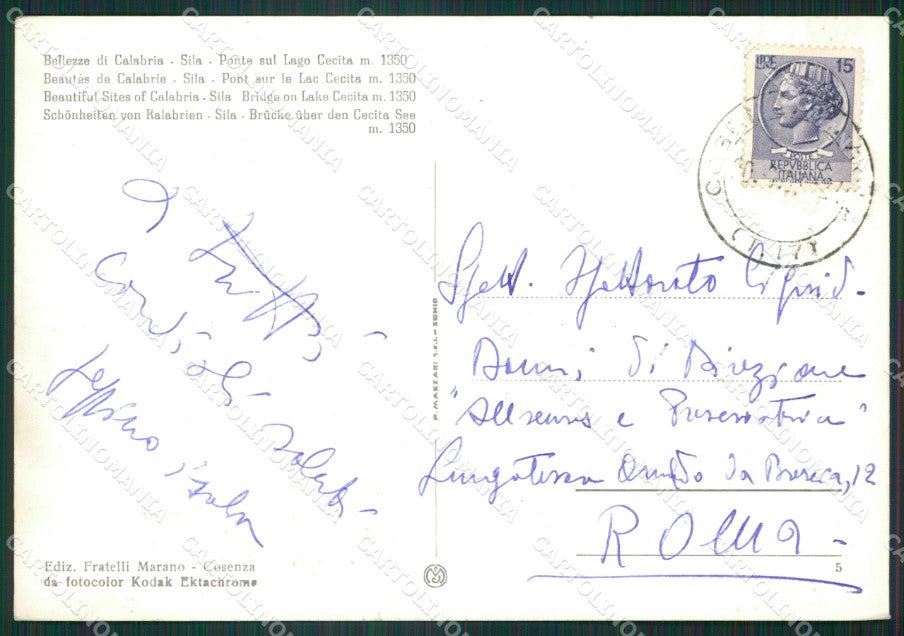 Bellezze di Calabria - Sila - Ponte sul Lago Cecita m. 1350
Beautés de Calabrie - Sila - Pont sur le Lac Cecita m. 1350
Beautiful Sites of Calabria - Sila Bridge on Lake Cecita m. 1350
Schönheiten von Kalabrien - Sila - Brücke über den Cecita See
m. 1350
LIRE 15
POSTE
REPVBBLICA
ITALIANA
A
tutti
Cordiali
saluti
Spett. Ispettorato Liquid.
Danni di Direzione
e
Lungotevere Arnaldo da Brescia, 12
ROMA
P. MARZARI S.R.L. - SCHIO
Ediz. Fratelli Marano - Cosenza
da fotocolor Kodak Ektachrome
5
CARTOLINOMANIA